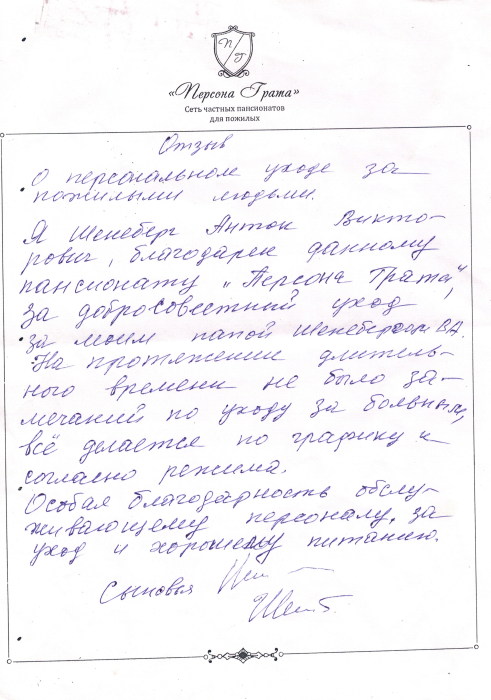 П/Г
«Персона Грата»
Сеть частных пансионатов
для пожилых
Отзыв
О персональном уходе за
пожилыми людьми.
Я Шенеберг Антон Викто-
рович, благодарен данному
пансионату „Персона Грата",
за добросовестный уход
за моим папой Шенебергом В.А.
На протяжении длитель-
ного времени не было за-
мечаний по уходу за больным,
всё делается по графику и
согласно режима.
Особая благодарность обслу-
живающему персоналу, за
уход и хорошему питанию.
Сыновья